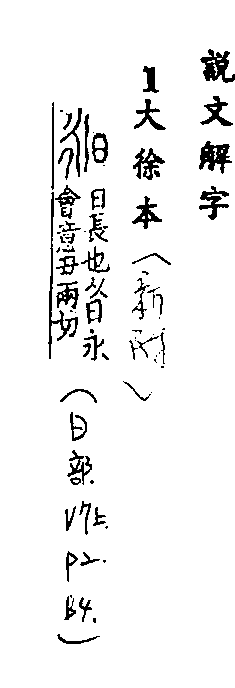 說文解字
1大徐本(新附)
昶 日長也从日永
會意丑兩切
(日部
V7上.
P2.
B4.)